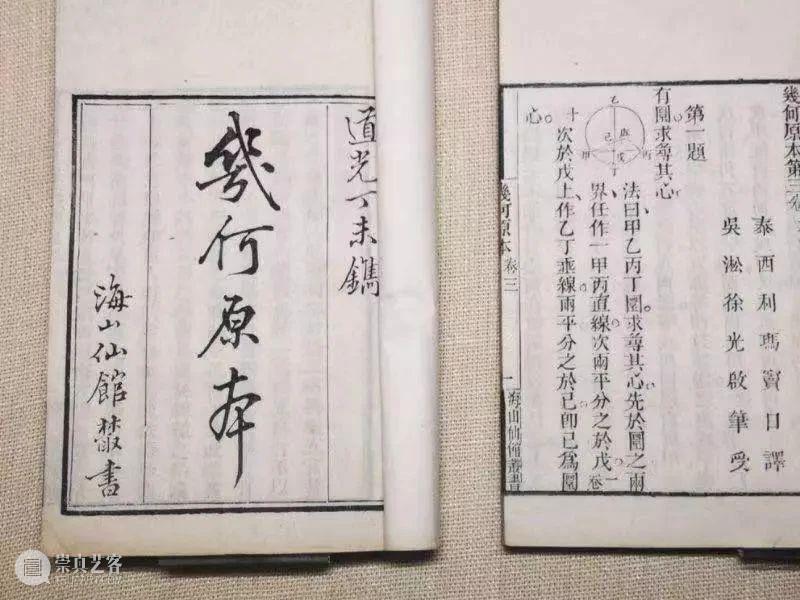 道光丁未鐫
幾何原本
海山仙館叢書
幾何原本第三卷
泰西利瑪竇口譯
吳淞徐光啟筆受
第一題
有圜求尋其心
法曰甲乙丙丁圜求尋其心先於圜之兩
界任作一甲丙直線次兩平分之於戊一卷
十次於戊上作乙丁垂線兩平分之於己即己為圜
心
乙
庚
己
戊
丙
甲
丁
幾何原本 卷三 一 海山仙館叢書
崇真艺客